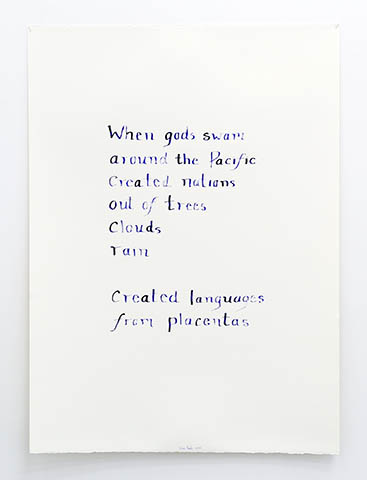 When gods swam
around the Pacific
Created nations
out of trees
Clouds
rain
Created languages
from placentas